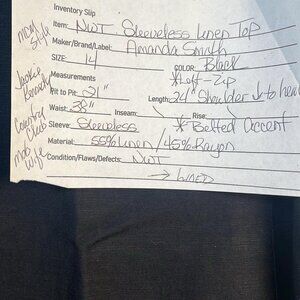 Inventory Slip
Item: NWT Sleeveless Linen Top
Maker/Brand/Label: Amanda Smith
SIZE: 14 COLOR: Black
Measurements *Left-Zip
Pit to Pit: 21" Length: 24" Shoulder ↓ to hem
Waist: 38" Inseam: Rise:
Sleeve: Sleeveless *Belted Accent
Material: 55% Linen/45% Rayon
Condition/Flaws/Defects: NWT
→ LINED
Mom
Style
Jackie
Country
Club
Mob
Wife